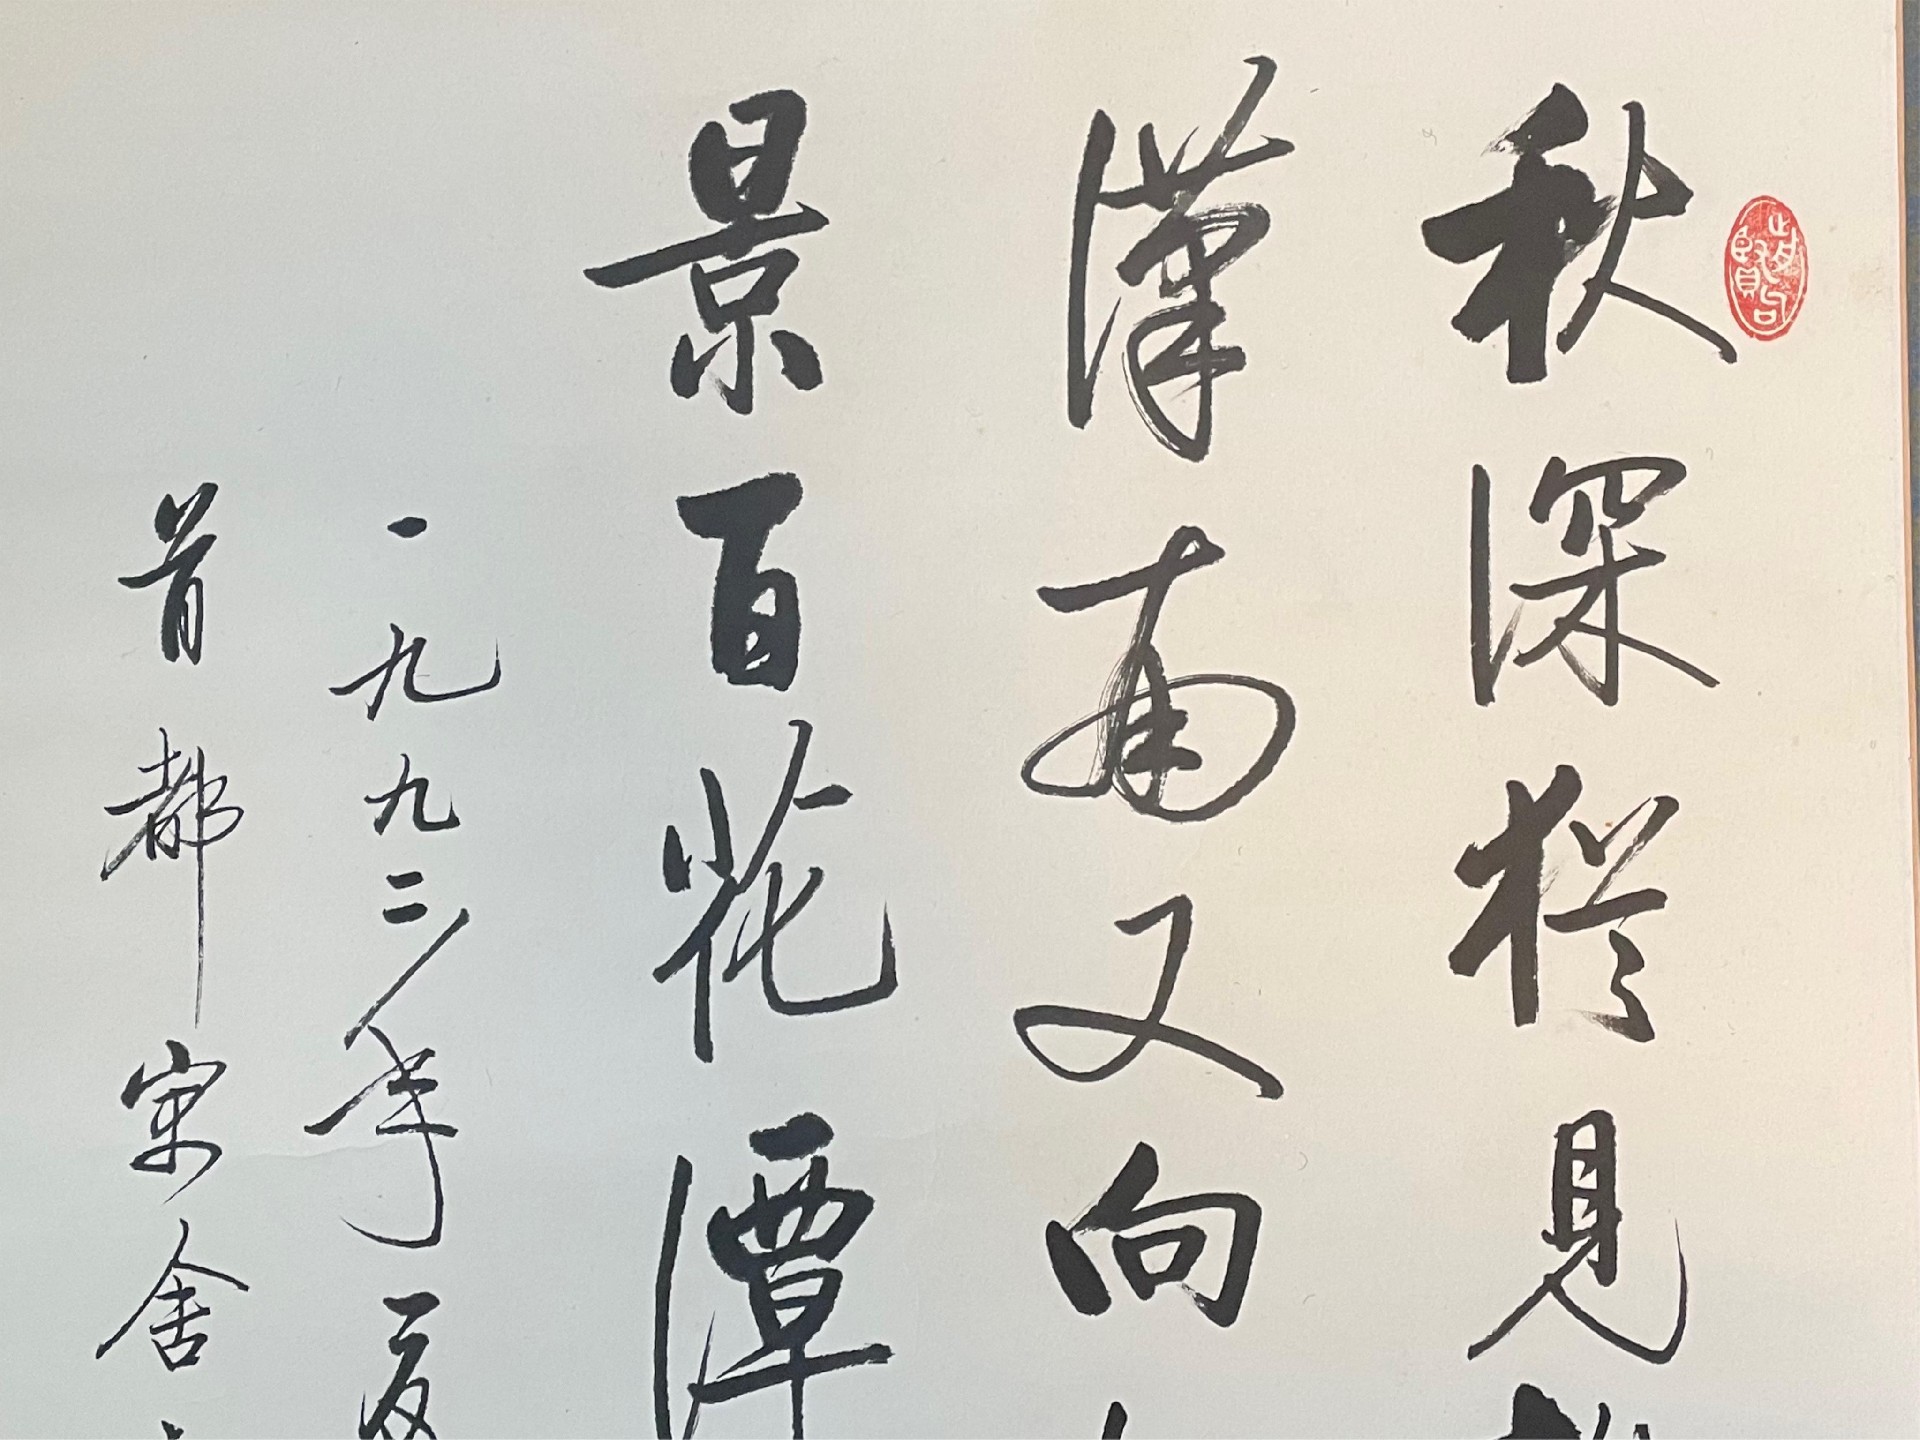 秋深見
漢南又向
景百花潭
一九九二年夏
首都寒舍